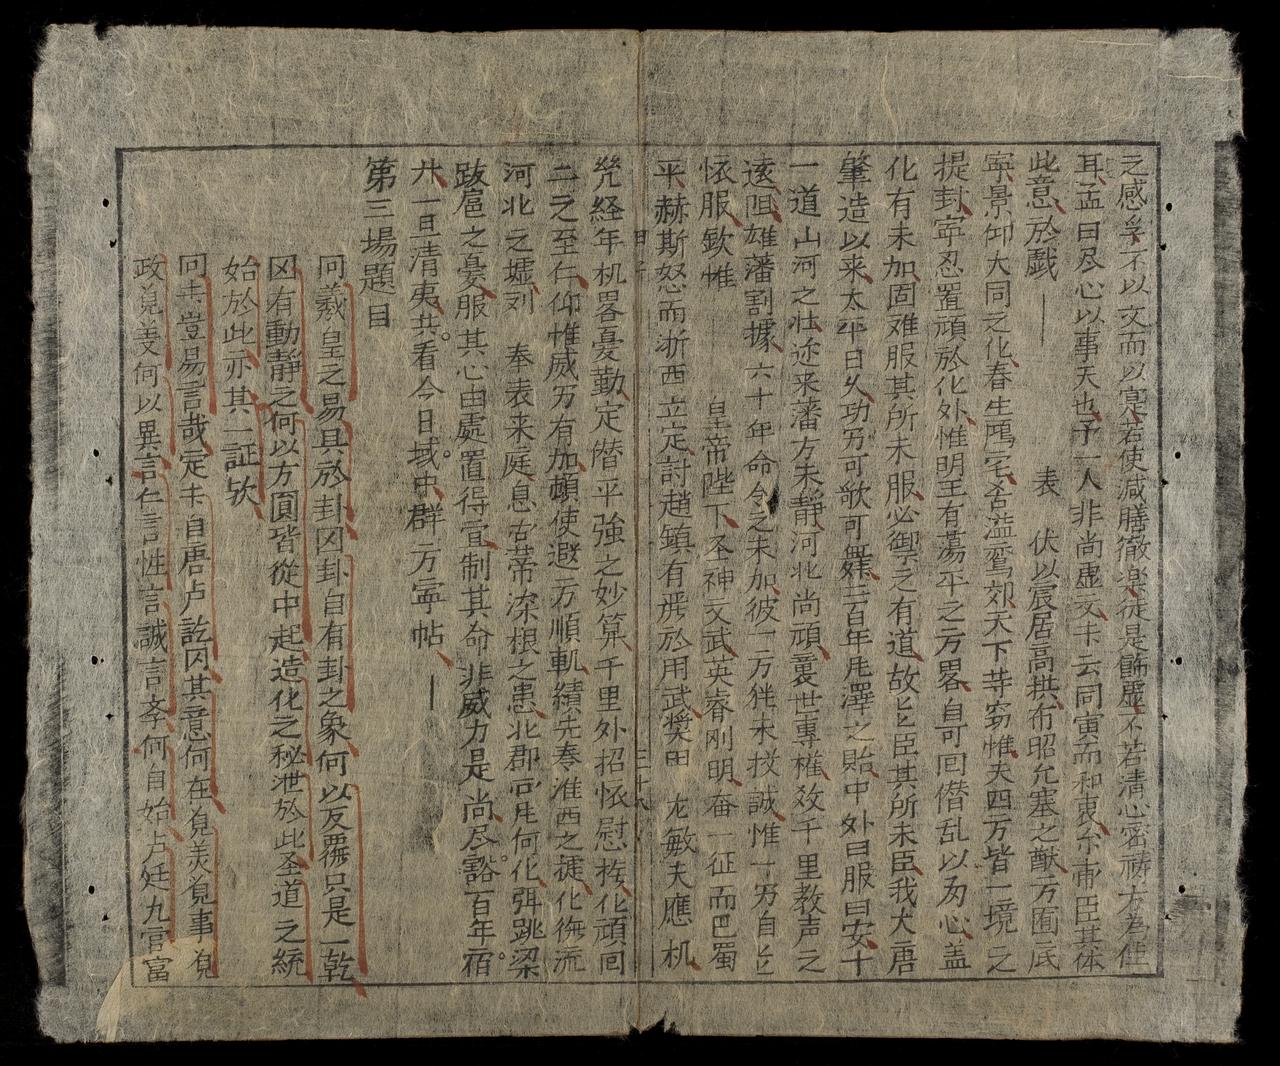 之感孚不以文而以寔若使減膳徹楽徒是飾虚不若清心密祷方為佳
耳孟曰尽心以事天也予一人非尚虚文卡云同寅而和衷尔甫臣其体
此意於戲 表 伏以宸居高拱布昭允塞之猷方囿底
寕景仰大同之化春生禹宅喜溢堯郊天下苛窃惟夫四方皆一境之
提封寕忍置頑於化外惟明王有荡平之方畧自可回僭乱以为心盖
化有未加固难服其所未服必御之有道故能臣其所未臣我大唐
肇造以来太平日久功歌可舞二百年厖澤之貽中外曰服曰安十
一道山河之壮迩来藩方未靜河北尚頑襲世專權效千里教声之
逺阻雄藩割據六十年命令之未加彼一方犹未投誠惟一穷自
怀服欽惟 皇帝陛下圣神文武英睿刚明奋一征而巴蜀
平赫斯怒而浙西立定討趙鎮有厪於用武奬田 尤敏夫應机
経年机畧憂勤定僭平強之妙算千里外招怀慰撫化頑囬
二之至仁仰惟威万有加頓使遐方順軌績先奏淮西之捷化徐流
河北之墟列 奉表来庭息古蒂深根之患北郡何化弭跳梁
跋扈之憂服其心由處置得宜制其命非威力是尚尽谿百年宿
廾一旦清夷共看今日域中群方寕帖
第三場題目
问羲皇之易具於卦因卦自有卦之象何以反覆只是一乾
因有動静之何以方圓皆從中起造化之秘泄於此圣道之統
始於此亦其一証欤
问豈易言哉定自唐卢訖囚其意何在覓羙覓事覓
政覓姜何以異言仁言性言誠言李何自始占廷九官富